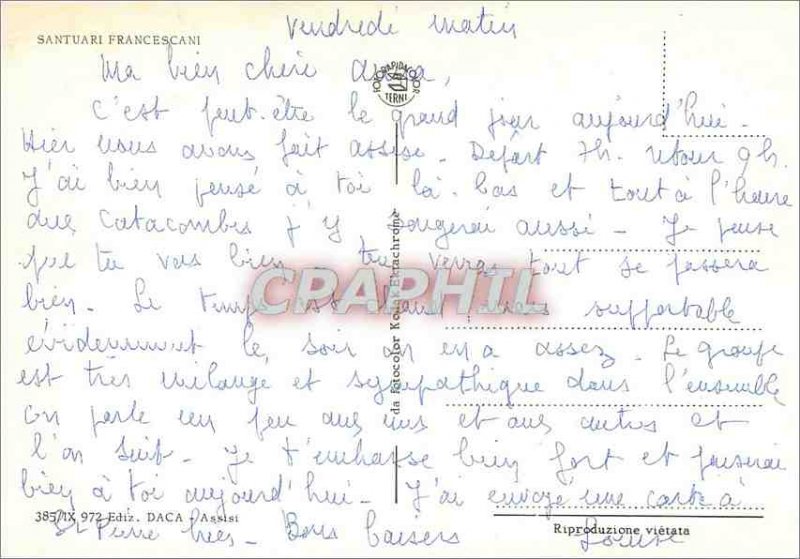 Vendredi matin
SANTUARI FRANCESCANI
Ma bien chère
FOTORAPIDACOLOR
TERNI
C'est peut-être le grand jour aujourd'hui.
Hier nous avons fait assise. Départ 7h. retour 9h.
J'ai bien pensé à toi là-bas et tout à l'heure
aux Catacombes j'y songerai aussi - Je pense
que tu vas bien - tu verras tout se passera
bien. Le temps est chaud, mais supportable
évidemment le soir on en a assez. Le groupe
est très mélangé et sympathique dans l'ensemble
on parle un peu aux uns et aux autres et
l'on suit. Je t'embrasse bien fort et penserai
bien à toi aujourd'hui. J'ai envoyé une carte à
St Pierre - Bons baisers Louise
da Fotocolor Kodak Ektachrome
CPAPHIL
385/IX 972 Ediz. DACA - Assisi
Riproduzione vietata